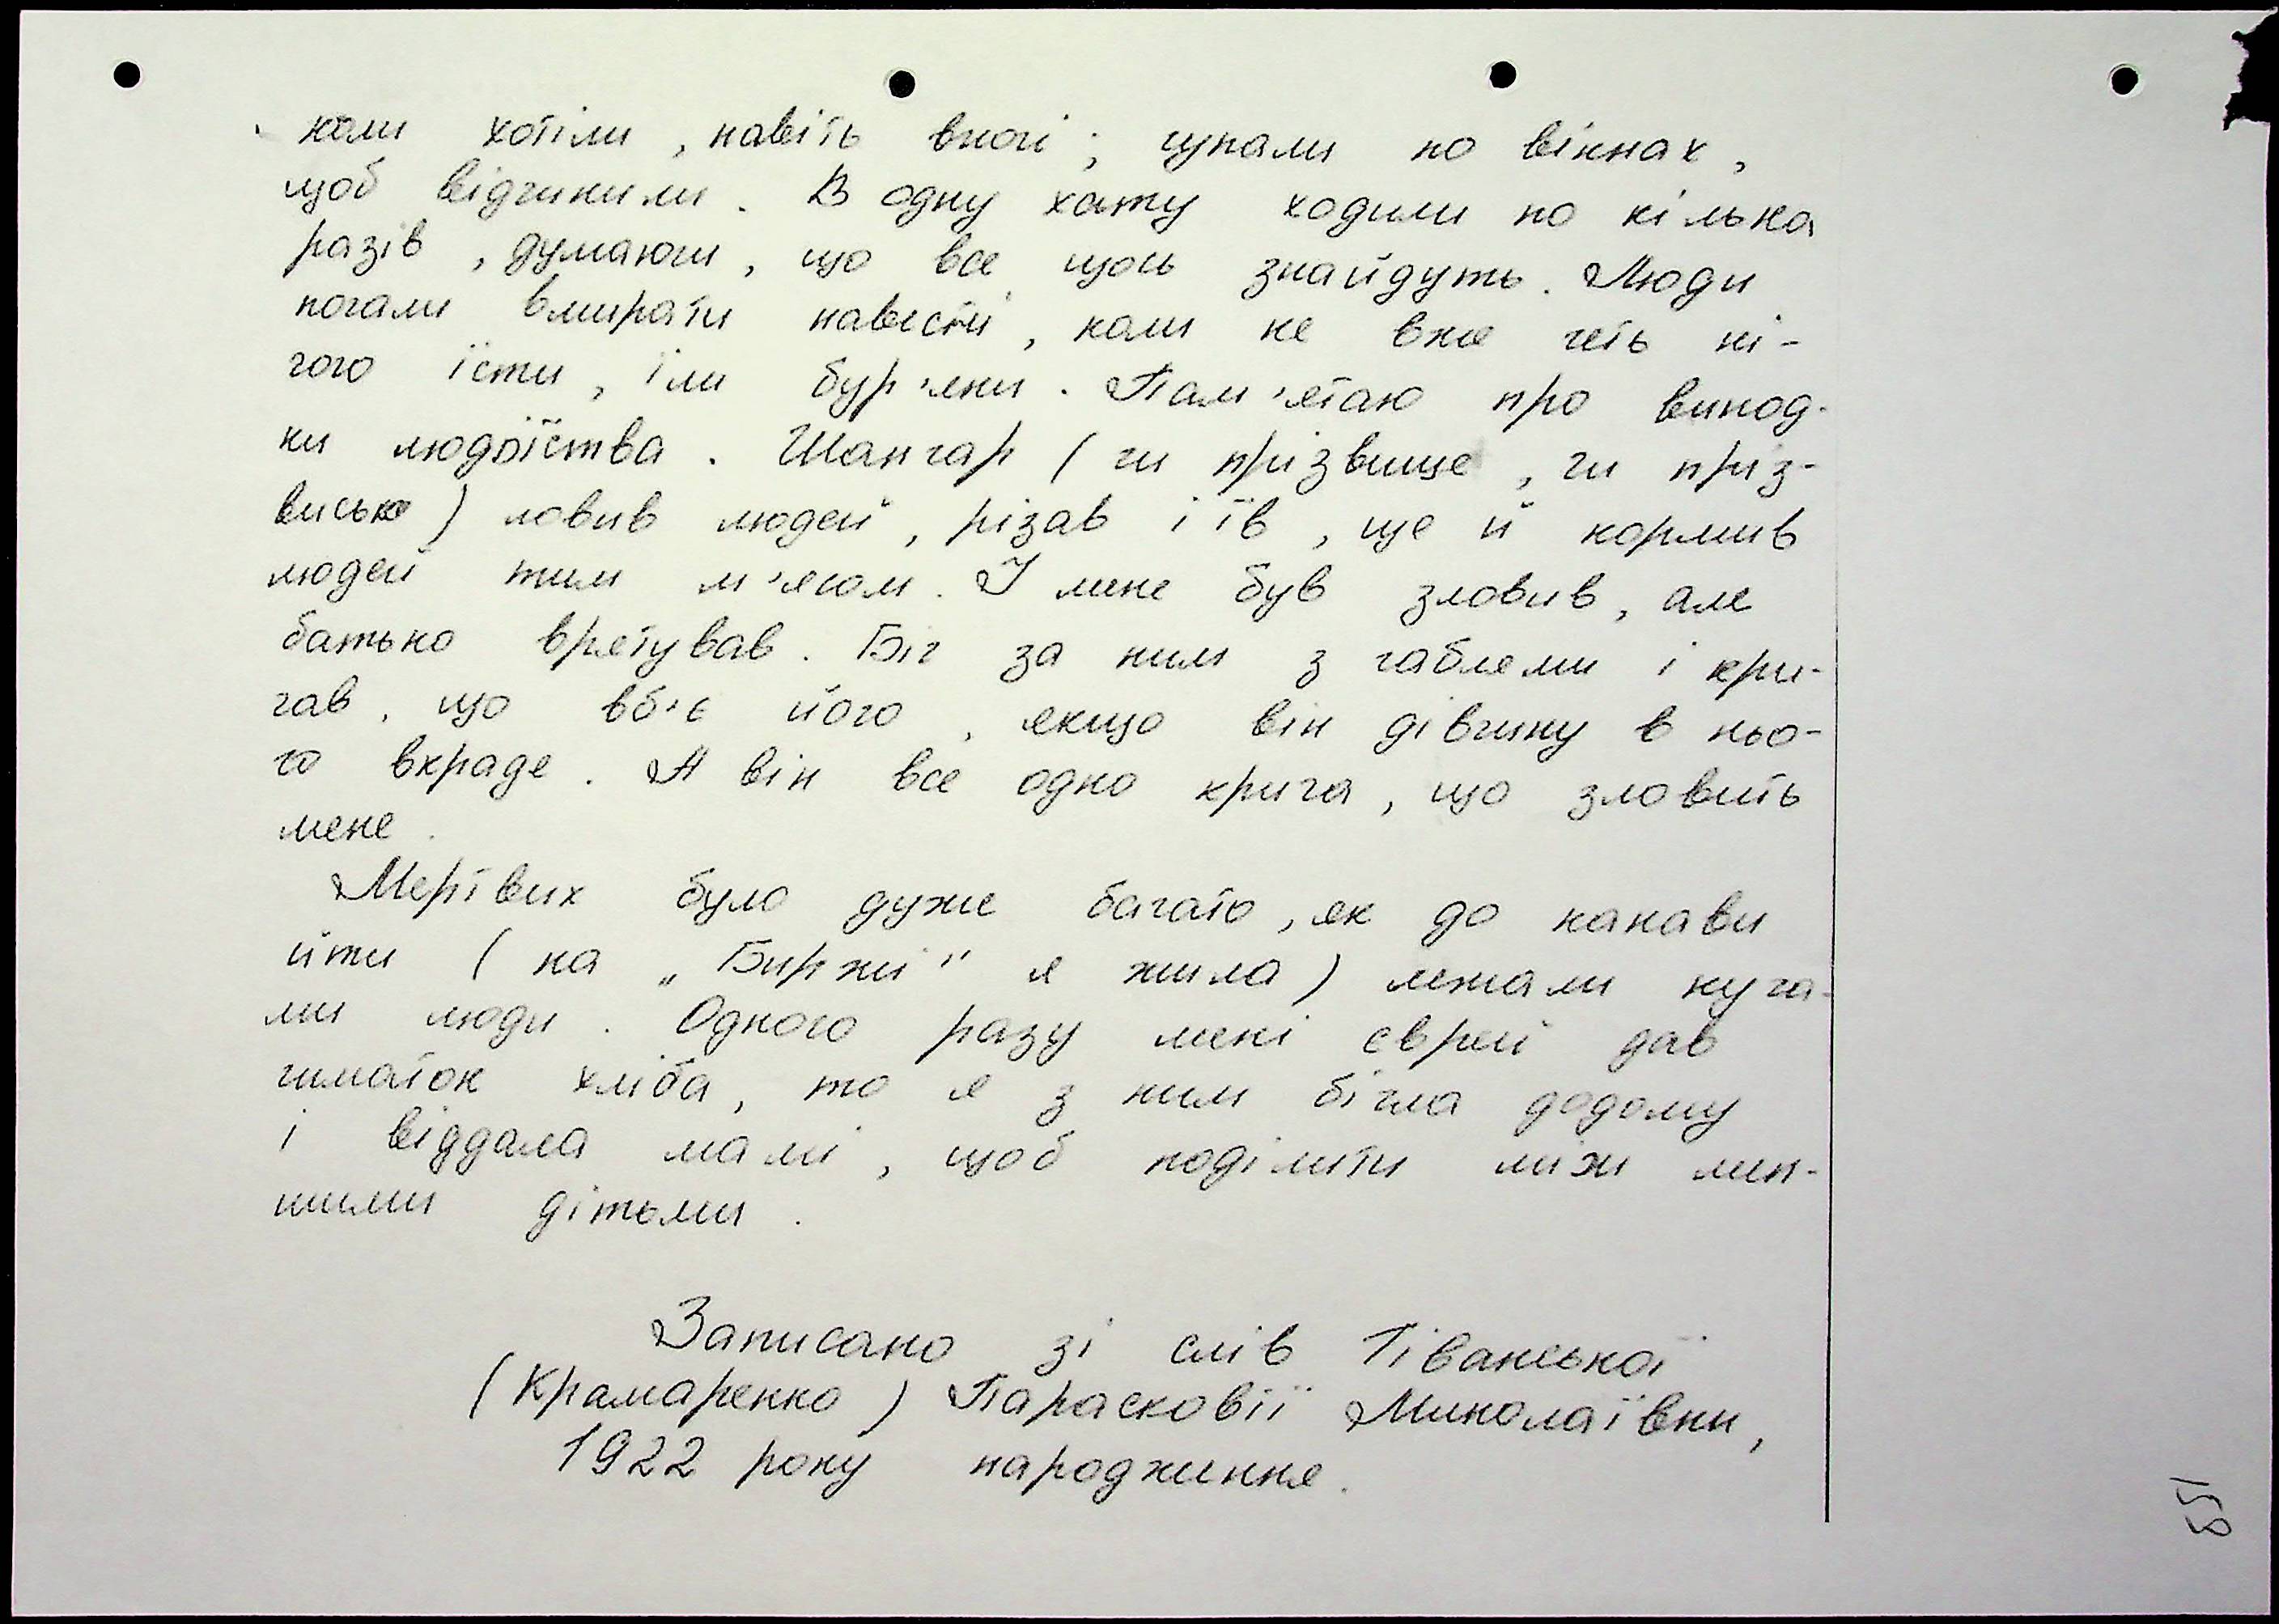 коли хотіли, навіть вночі; цупали по вікнах,
щоб відчинили. В одну хату ходили по кілька
разів, думаючи, що все щось знайдуть. Люди
почали вмирати навесні, коли не вже геть ні-
чого їсти, їли бур'яни. Пам'ятаю про випад-
ки людоїства. Шангар (чи прізвище, чи пріз-
висько) ловив людей, різав і їв, ще й кормив
людей тим м'ясом. І мене був зловив, але
батько врятував. Біг за ним з габлями і кри-
чав, що вб'є його, якщо він дівчину в ньо-
го вкраде. А він все одно крича, що зловить
мене.
Мертвих було дуже багато, як до канави
йти (на „Биржі" я жила) лежали куча-
ми люди. Одного разу мені єврей дав
шматок хліба, то я з ним бігла додому
і віддала мамі, щоб поділити між мен-
шими дітьми.
Записано зі слів Тіванської
(Крамаренко) Парасковії Миколаївни,
1922 року народження.